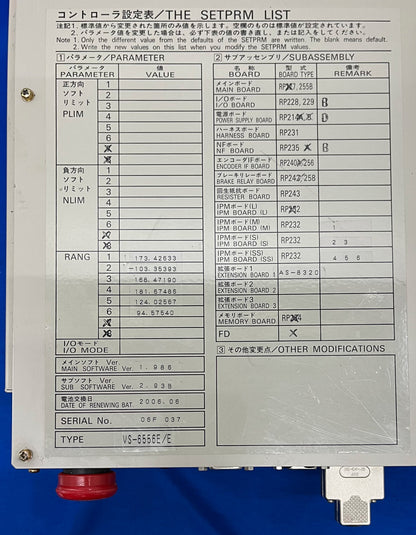 コントローラ設定表/THE SETPRM LIST
注記1. 標準値から変更された箇所のみ値を示します。空白のものは標準値が設定されています。
2. パラメータ値を変更した場合は、必ず下表の値の書き直し、または記入をしてください。
Note 1. Only the different value from the defaults of the SETPRM are written. The blank means default.
2. Write the new values on this list when you modify the SETPRM values.
1 パラメータ/PARAMETER
パラメータ 値
PARAMETER VALUE
正方向 1
ソフト 2
リミット 3
PLIM 4
5
6
負方向 1
ソフト 2
リミット 3
NLIM 4
5
6
RANG 1 173.42633
2 -103.35393
3 166.47190
4 181.57465
5 124.02567
6 94.57540
I/Oモード
I/O MODE
メインソフト Ver.
MAIN SOFTWARE Ver. 1.986
サブソフト Ver.
SUB SOFTWARE Ver. 2.93B
電池交換日
DATE OF RENEWING BAT. 2006.06
SERIAL No. 05F 037
TYPE VS-6556E/E
2 サブアッセンブリ/SUBASSEMBLY
名称 型式 備考
BOARD BOARD TYPE REMARK
メインボード
MAIN BOARD 255B
I/Oボード
I/O BOARD RP228, 229 B
電源ボード
POWER SUPPLY BOARD
ハーネスボード
HARNESS BOARD RP231
NFボード
NF BOARD RP235 B
エンコーダIFボード
ENCODER IF BOARD 256
ブレーキリレーボード
BRAKE RELAY BOARD 258
回生抵抗ボード
RESISTER BOARD RP243
IPMボード(L)
IPM BOARD (L)
IPMボード(M)
IPM BOARD (M) RP232 1
IPMボード(S)
IPM BOARD (S) RP232 2 3
IPMボード(SS)
IPM BOARD (SS) RP232 4 5 6
拡張ボード1
EXTENSION BOARD 1 AS-8320
拡張ボード2
EXTENSION BOARD 2
拡張ボード3
EXTENSION BOARD 3
メモリボード
MEMORY BOARD
FD
3 その他変更点/OTHER MODIFICATIONS